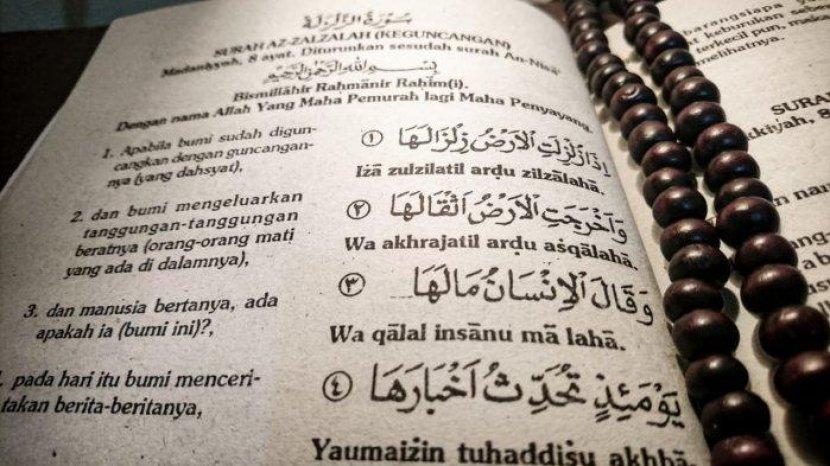 سُورَةُ الزَّلْزَلَةِ
SURAH AZ-ZALZALAH (KEGUNCANGAN)
Madaniyyah, 8 ayat. Diturunkan sesudah surah An-Nisā'
بِسْمِ اللهِ الرَّحْمٰنِ الرَّحِيْمِ
Bismillāhir Rahmānir Rahīm(i).
Dengan nama Allah Yang Maha Pemurah lagi Maha Penyayang.
1. Apabila bumi sudah digun-
cangkan dengan guncangan-
nya (yang dahsyat),
اِذَا زُلْزِلَتِ الْاَرْضُ زِلْزَالَهَا ١
Iżā zulzilatil arḍu zilzālahā.
2. dan bumi mengeluarkan
tanggungan-tanggungan
beratnya (orang-orang mati
yang ada di dalamnya),
وَاَخْرَجَتِ الْاَرْضُ اَثْقَالَهَا ٢
Wa akhrajatil arḍu aṡqālahā.
3. dan manusia bertanya, ada
apakah ia (bumi ini)?,
وَقَالَ الْاِنْسَانُ مَالَهَا ٣
Wa qālal insānu mā lahā.
. pada hari itu bumi menceri-
takan berita-beritanya,
يَوْمَئِذٍ تُحَدِّثُ اَخْبَارَهَا ٤
Yaumaiżin tuḥaddiṡu akhbā.
barangsiapa
keburukan
terkecil pun, maka
melihatnya.
SURA